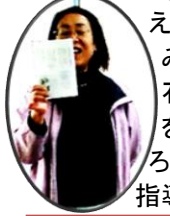 え
み
を
ろ
指導